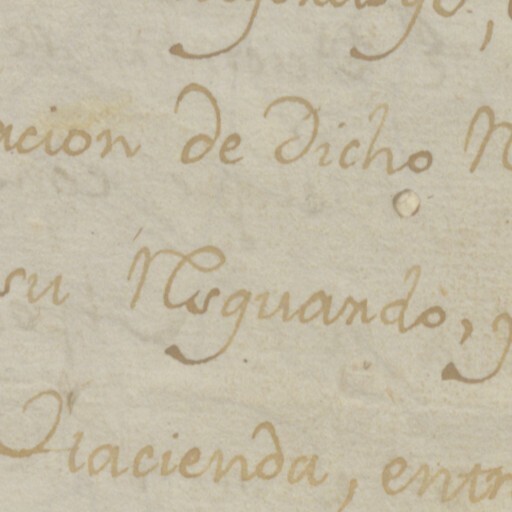 acion de dicho
su Resguardo, y
Hacienda, entr